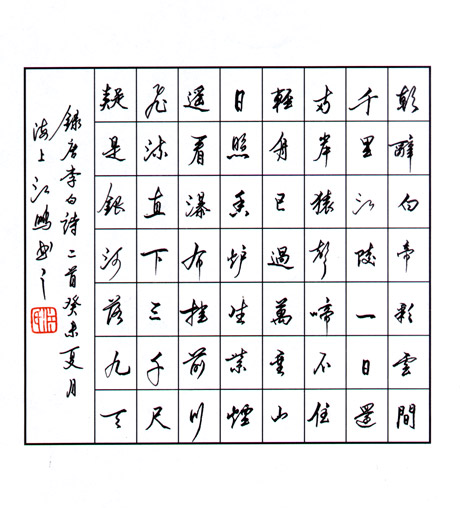 朝辭白帝彩雲間
千里江陵一日還
两岸猿聲啼不住
輕舟已過萬重山
日照香炉生紫煙
遥看瀑布挂前川
飛流直下三千尺
疑是銀河落九天
録唐李白詩二首癸未夏月
海上江鹏书之